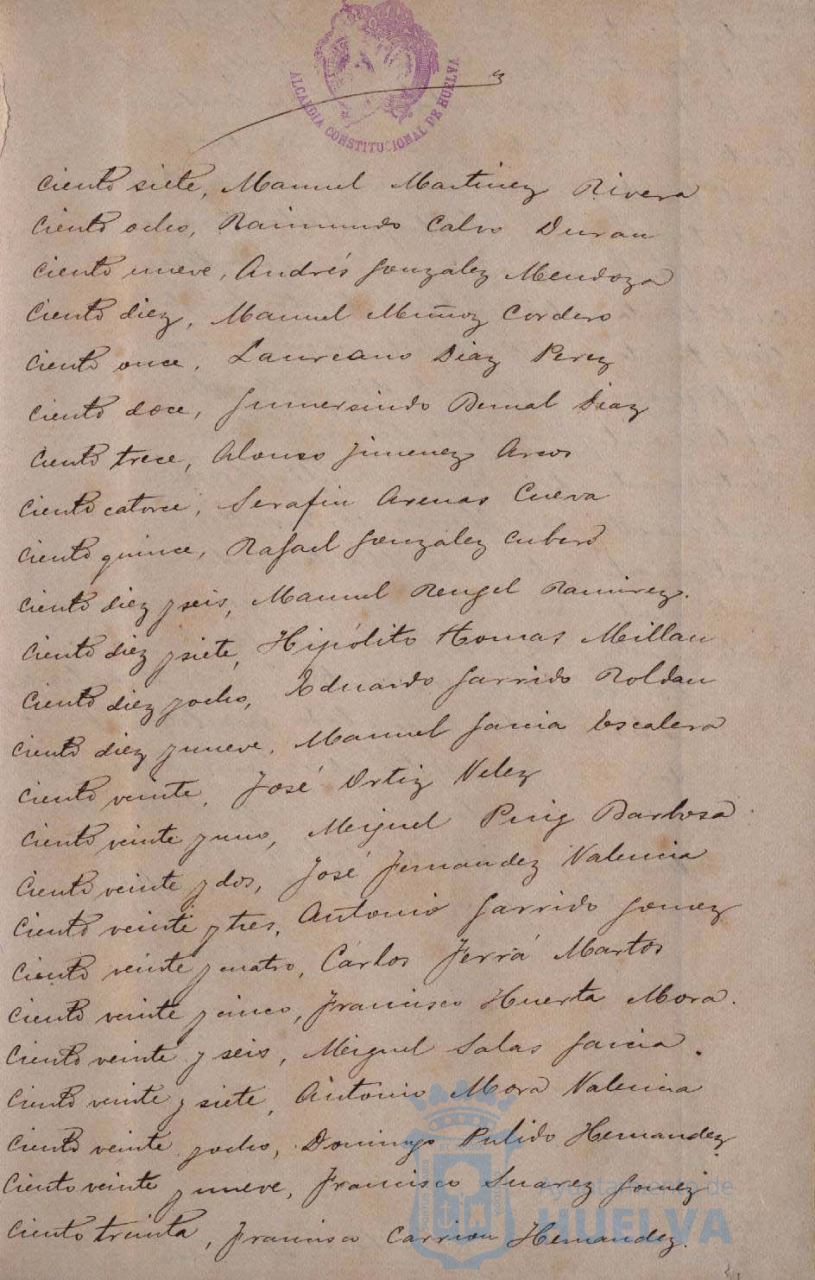 3
ALCALDIA CONSTITUCIONAL DE HUELVA
Ciento siete, Manuel Martinez Rivera
Ciento ocho, Raimundo Calvo Duran
Ciento nueve, Andrés Gonzalez Mendoza
Ciento diez, Manuel Muñoz Cordero
Ciento once, Laureano Diaz Perez
Ciento doce, Gumersindo Bernal Diaz
Ciento trece, Alonso Jimenez Arcos
Ciento catorce, Serafin Arenas Cueva
Ciento quince, Rafael Gonzalez Cubero
Ciento diez y seis, Manuel Rengel Ramirez.
Ciento diez y siete, Hipólito Homas Millan
Ciento diez y ocho, Eduardo Garrido Roldan
Ciento diez y nueve, Manuel Garcia Escalera
Ciento veinte, José Ortiz Velez
Ciento veinte y uno, Miguel Puig Barbosa
Ciento veinte y dos, José Fernandez Valencia
Ciento veinte y tres, Antonio Garrido Gomez
Ciento veinte y cuatro, Cárlos Ferrá Martos
Ciento veinte y cinco, Francisco Huerta Mora.
Ciento veinte y seis, Miguel Salas Garcia.
Ciento veinte y siete, Antonio Mora Valencia
Ciento veinte y ocho, Domingo Pulido Hernandez
Ciento veinte y nueve, Francisco Suarez Gomez
Ayuntamiento de
HUELVA
Ciento treinta, Francisco Carrion Hernandez.